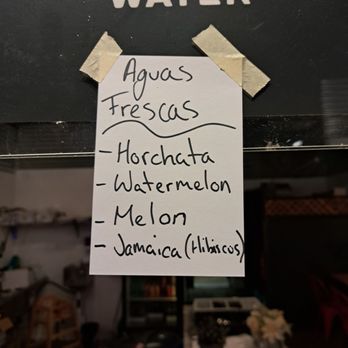 WATER
Aguas
Frescas
- Horchata
- Watermelon
- Melon
- Jamaica (Hibiscos)